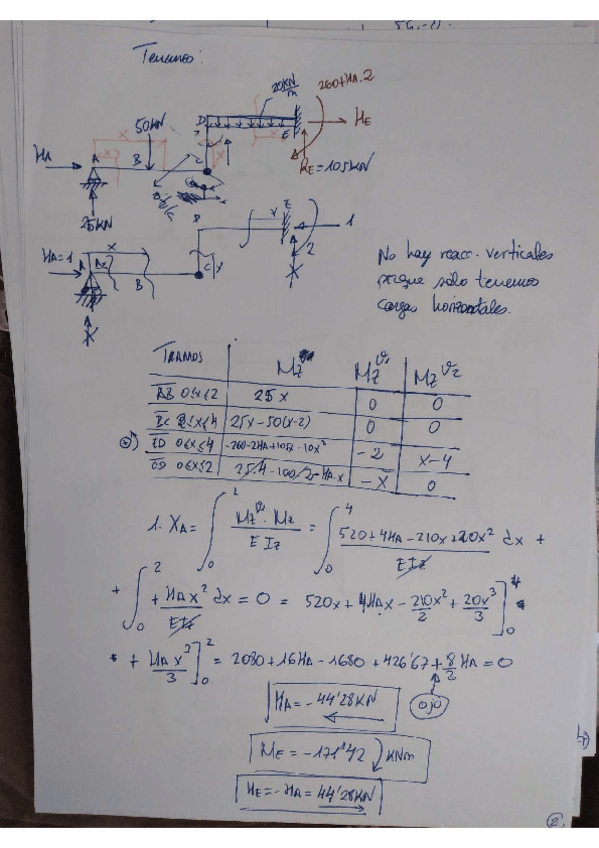 Tenemos:
20KN/m
260+HA·2
50KN
D
E
HE
HA
A
x
B
C
RE=105KN
25KN
E
1
2
HA=1
A
x
B
C
No hay reacc. verticales
porque sólo tenemos
cargas horizontales.
TRAMOS Mz Mz Mz
AB 0≤x≤2 25x 0 0
BC 2≤x≤4 25x-50(x-2) 0 0
ED 0≤x≤4 -260-2HA+105x-10x² -2 x-4
CD 0≤x≤2 25·4-100/2-HA·x -x 0
1. XA = ∫ Mz · Mz / EIz = ∫ 520+4HA-210x+20x² / EIz dx +
+ ∫ + HAx² / EIz dx = 0 = 520x + 4HAx - 210x²/2 + 20x³/3 ]
+ HAx³/3 ] = 2080+16HA-1680+426'67+8/2 HA = 0
HA = -44'28KN
ojo
ME = -171'42 KNm
HE = -HA = 44'28KN
2